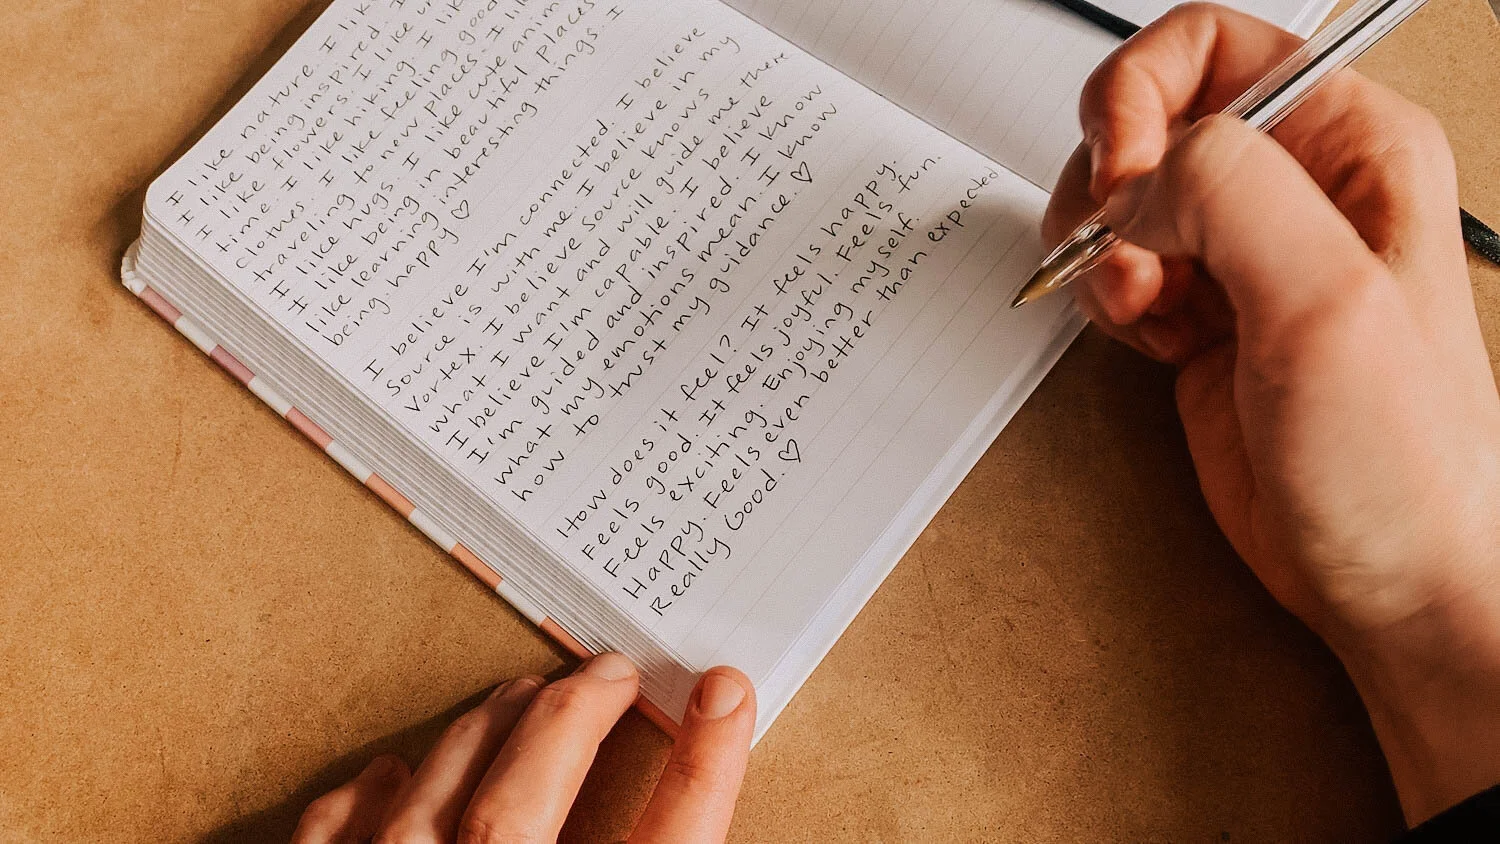 I like nature. I like
I like being inspired. I
I like flowers. I like
time. I like hiking. I like
clothes. I like feeling good
traveling to new places. I like
I like hugs. I like cute anim
I like being in beautiful places
like learning interesting things. I
being happy ♡
I believe I'm connected. I believe
Source is with me. I believe in my
Vortex. I believe Source knows
what I want and will guide me there
I believe I'm capable. I believe
I'm guided and inspired. I know
what my emotions mean. I know
how to trust my guidance. ♡
How does it feel? It feels happy.
Feels good. It feels joyful. Feels fun.
Feels exciting. Enjoying myself.
Happy. Feels even better than expected
Really Good. ♡